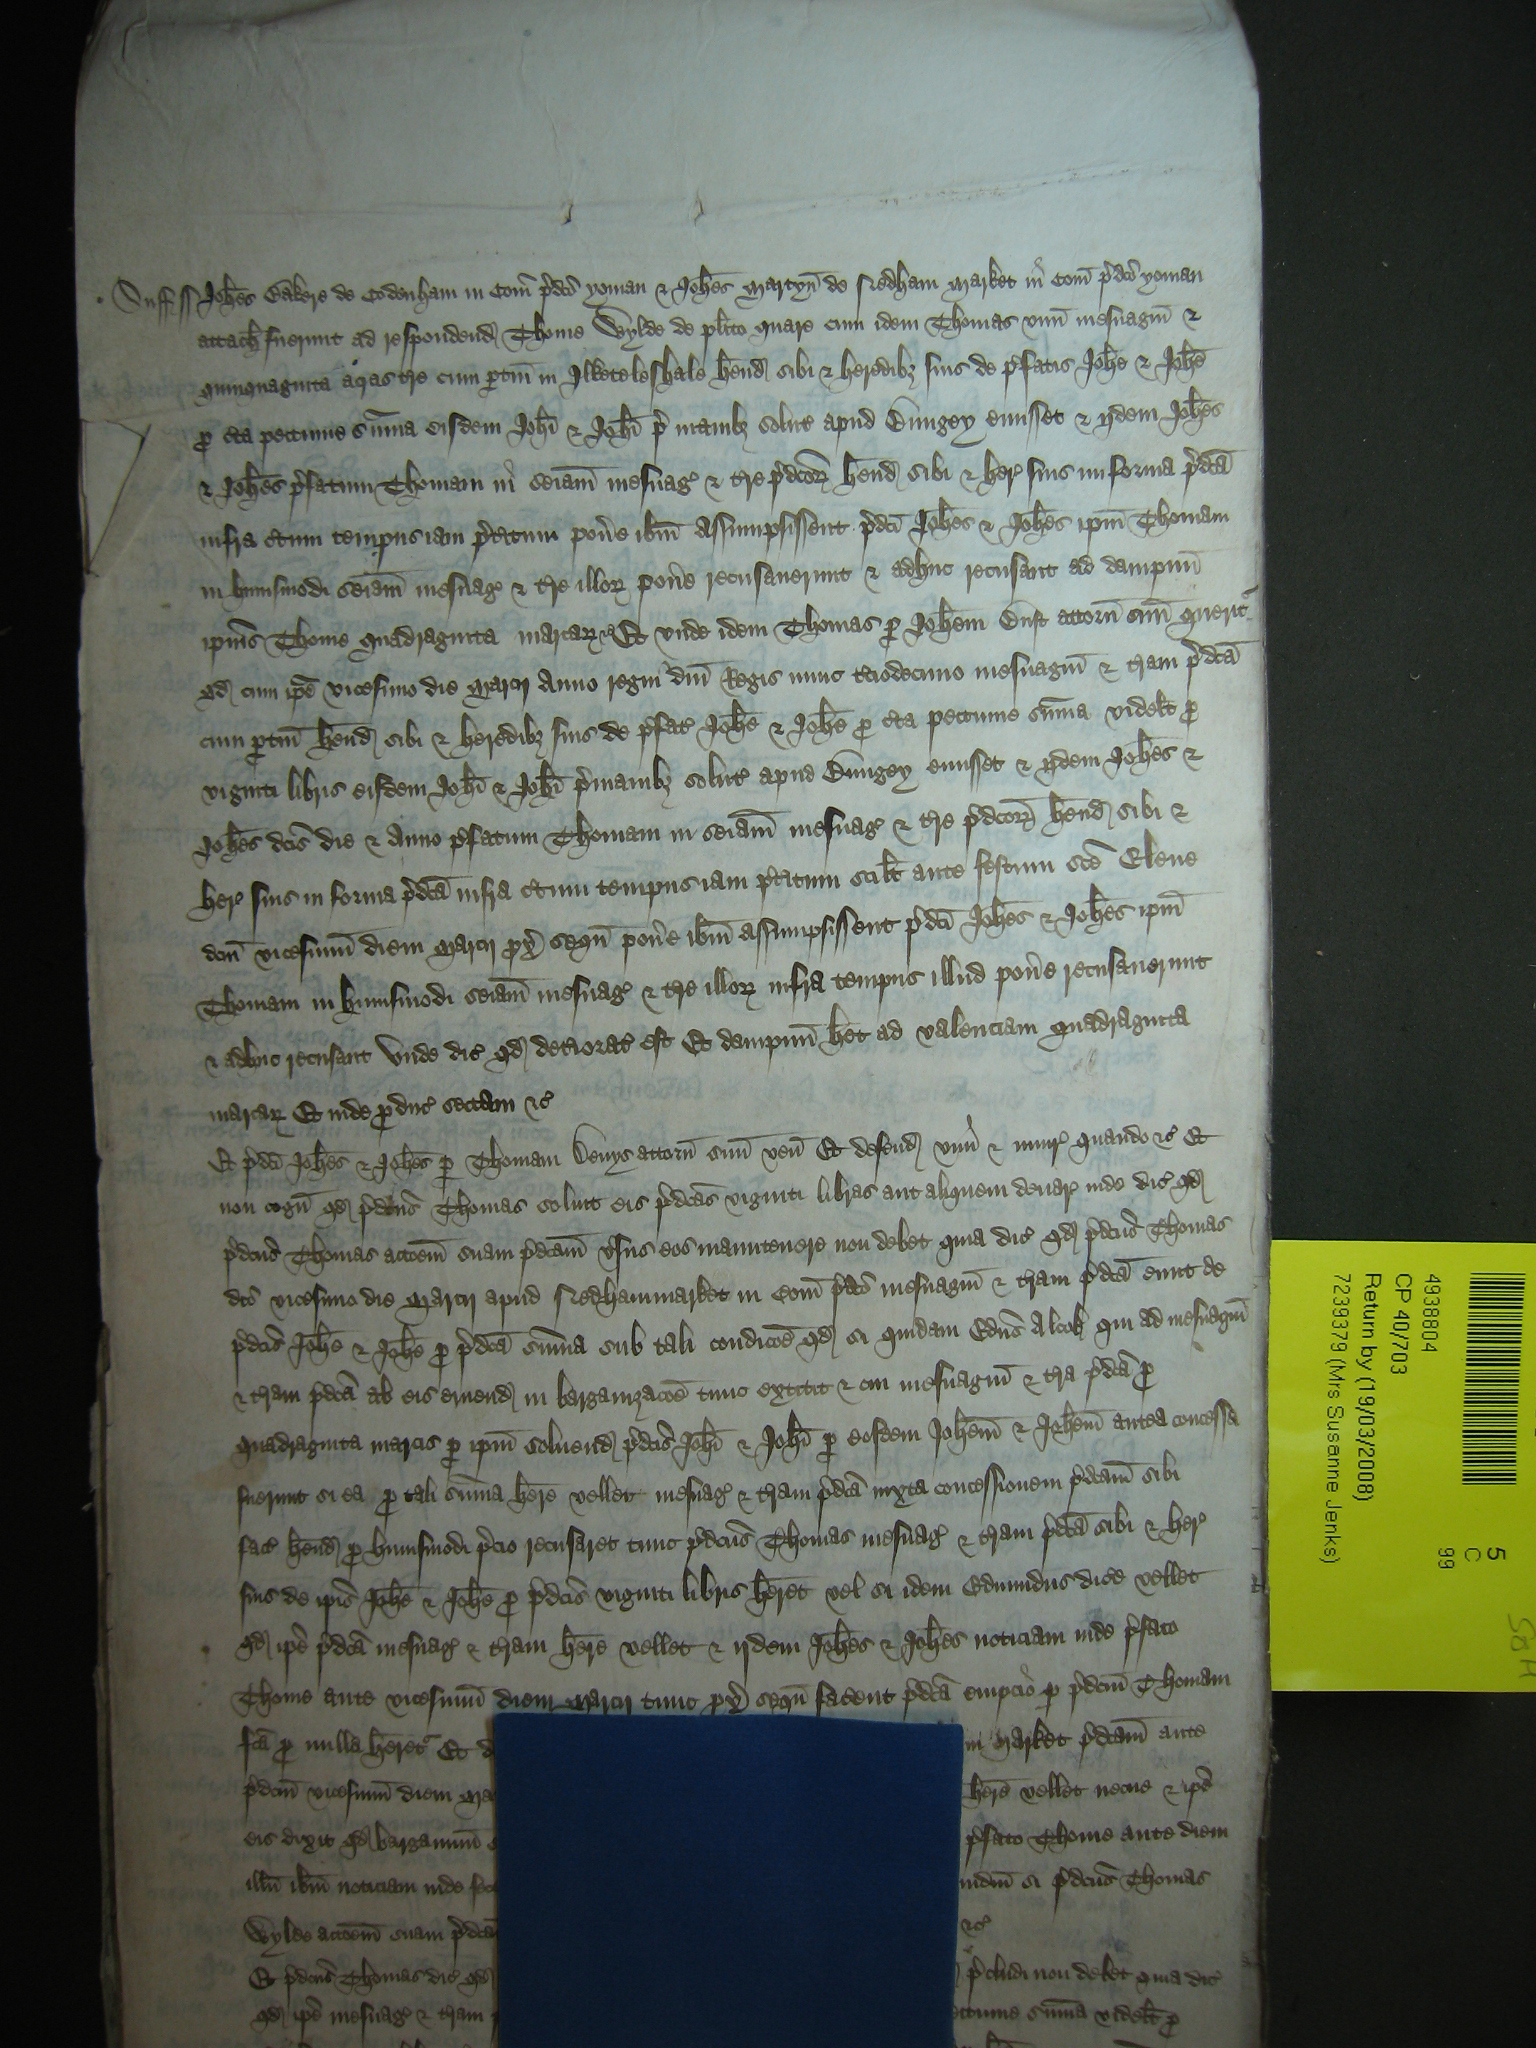 Suff ss Joh̄es Bakere de Codenham in Com̄ p̄dc̄o yoman & Joh̄es Martyn de Nedham Market in Com̄ p̄dc̄o yoman
attach fuerunt ad respondend Thome Wylde de pl̄ito quare cum idem Thomas unū mesuagiū &
quinquaginta acras t̄re cum p̄tin̄ in Ilketeleshale h̄end sibi & heredibȝ suis de p̄fatis Joh̄e & Joh̄e
p c̄ta peccunie sūma eisdem Joh̄i & Joh̄i p̄ manibȝ solut apud Bungey emisset & ijdem Joh̄es
& Joh̄es p̄fatum Thomam in seiām mesuag & t̄re p̄dc̄oꝝ h̄end sibi & her suis in forma p̄dc̄a
infra c̄tum tempus iam p̄t̄itum pon̄e ib̄m assumpsissent p̄dc̄i Joh̄es & Joh̄es ip̄m Thomam
in hui̅smodi seiām mesuag & t̄re illoꝝ pon̄e recusauerunt & adhuc recusant ad dampnū
ip̄ius Thome quadraginta marcaꝝ &c Et unde idem Thomas p Joh̄em attorn̄ suū querit̄
qd cum ip̄e vicesimo die Marcij Anno regni dn̄i Regis nunc t̄ciodecimo mesuagiū & t̄ram p̄dc̄a
cum p̄tin̄ h̄end sibi & heredibȝ suis de p̄fat Joh̄e & Joh̄e p c̄ta peccunie sūma videlt p
viginti libris eisdem Joh̄i & Joh̄i p̄ manibȝ solut apud Bungey emisset & ijdem Joh̄es &
Joh̄es dc̄is die & Anno p̄fatum Thomam in seiām mesuag & t̄re p̄dc̄oꝝ h̄end sibi &
her suis in forma p̄dc̄a infra c̄tum tempus iam p̄t̄itum scilt ante festum sc̄e Elene
dc̄m vicesimū diem Marcij prox seqū pon̄e ib̄m assumpsissent p̄dc̄i Joh̄es & Joh̄es ip̄m
Thomam in hui̅smodi seiām mesuag & t̄re illoꝝ infra tempus illud pon̄e recusauerunt
& adhuc recusant unde dic qd det̄iorat est Et dampnū h̄et ad valenciam quadraginta
marcaꝝ Et inde p̄duc sectam &c
Et p̄dc̄i Joh̄es & Joh̄es p Thomam Denys attorn̄ suū ven̄ Et defend vim & iniur quando &c Et
non cogn̄ qd p̄dc̄us Thomas soluit eis p̄dc̄as viginti libras aut aliquem denar inde dic qd
p̄dc̄us Thomas acc̄oem suam p̄dc̄am v̄sus eos manutenere non debet quia dic qd p̄dc̄us Thomas
dc̄o vicesimo die Marcij apud Nedhammarket in Com̄ p̄dc̄o mesuagiū & t̄ram p̄dc̄a emit de
p̄dc̄is Joh̄e & Joh̄e p p̄dc̄a sūma sub tali condic̄oe qd si quidam Edūs Alcok qui ad mesuagiū
& t̄ram p̄dc̄a ab eis emend in barganizac̄oe tunc extitit & cui mesuagiū & t̄ra p̄dc̄a p
quadraginta marcis p ip̄m soluend p̄dc̄is Joh̄i & Joh̄i p eosdem Joh̄em & Joh̄em antea concessa
fuerunt si ea p tali sūma h̄ere vellet mesuag & t̄ram p̄dc̄a iuxta concessionem p̄dc̄am sibi
fact h̄end p hui̅smodi p̄cio recusaret tunc p̄dc̄us Thomas mesuag & t̄ram p̄dc̄a sibi & her
suis de ip̄is Joh̄e & Joh̄e p p̄dc̄is viginti libris h̄eret vel si idem Edmundus dic̄e vellet
qd ip̄e p̄dc̄a mesuag & t̄ram h̄ere vellet & ijdem Joh̄es & Joh̄es noticiam inde p̄fato
Thome ante vicesimū diem Marcij tunc prox seqū facent p̄dc̄a empcio p p̄dc̄m Thomam
fc̄a p nulla h̄eret Et
Market p̄dc̄am ante
p̄dc̄m vicesimū diem Ma
h̄ere vellet necne & ip̄e
eis dixit qd bargannū
p̄fato Thome ante diem
illū ib̄m noticiam inde fec
si p̄dc̄us Thomas
Wylde acc̄oem suam p̄dc̄a
&c
Et p̄dc̄us Thomas dic qd
p̄cludi non debet quia dic
qd ip̄e mesuag & t̄ram
sūma videlt p
4938804
CP 40/703
Return by (19/03/2008)
7239379 (Mrs Susanne Jenks)
5
C
99